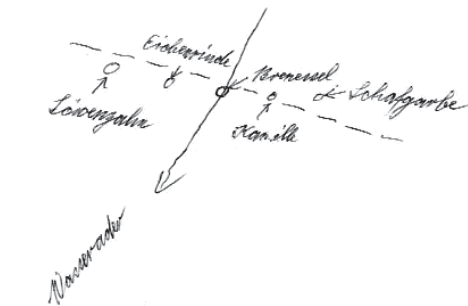 Eichenrinde
Brennessel
Schafgarbe
Löwenzahn
Kamille
Wasserader